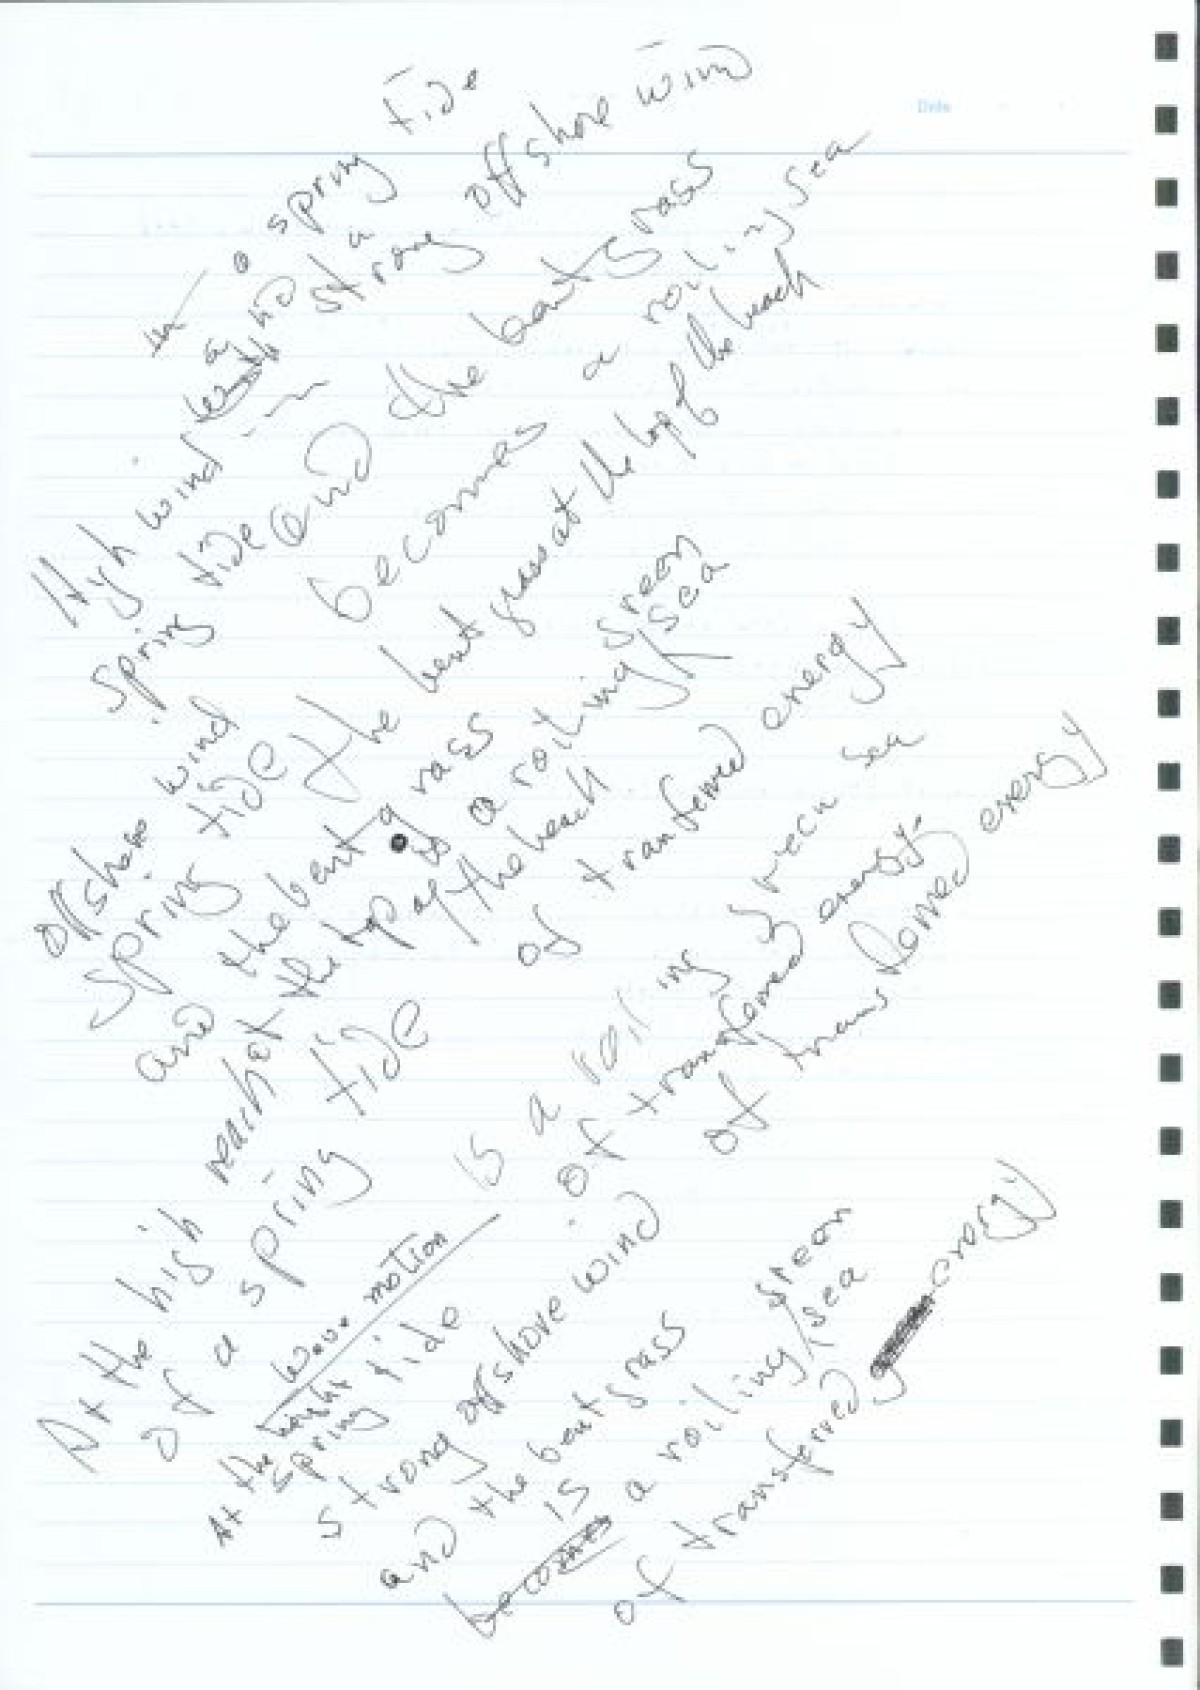 Date
a spring tide
and a
strong offshore wind
High wind
spring tide and the bent grass
becomes a roiling sea
offshore wind
spring tide the bent grass at the top of the beach
and the bent grass is a roiling green sea
at the top of the beach
of transferred energy
At the high reach
of a spring tide
is a roiling green sea
of transferred energy.
of transferred energy
wave motion
At the height
spring tide
strong offshore wind
and the bent grass
is
becomes a roiling green sea
of transferred energy